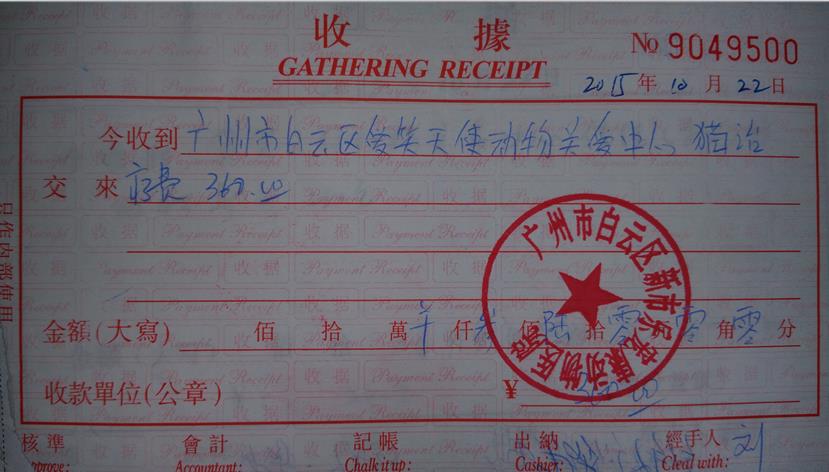 收據
No 9049500
GATHERING RECEIPT
2015年10月22日
今收到 广州市白云区爱笑天使动物关爱中心 猫治
交來 疗费 360.00
金額(大寫) 佰 拾 萬 仟 佰 陆 拾 零 零 角 零 分
收款單位(公章) ¥ 360.00
广州市白云区新市乐定康动物医院
核準 會計 記帳 出納 經手人 刘
Approve: Accountant: Chalk it up: Cashier: Cleal with:
只作内部使用